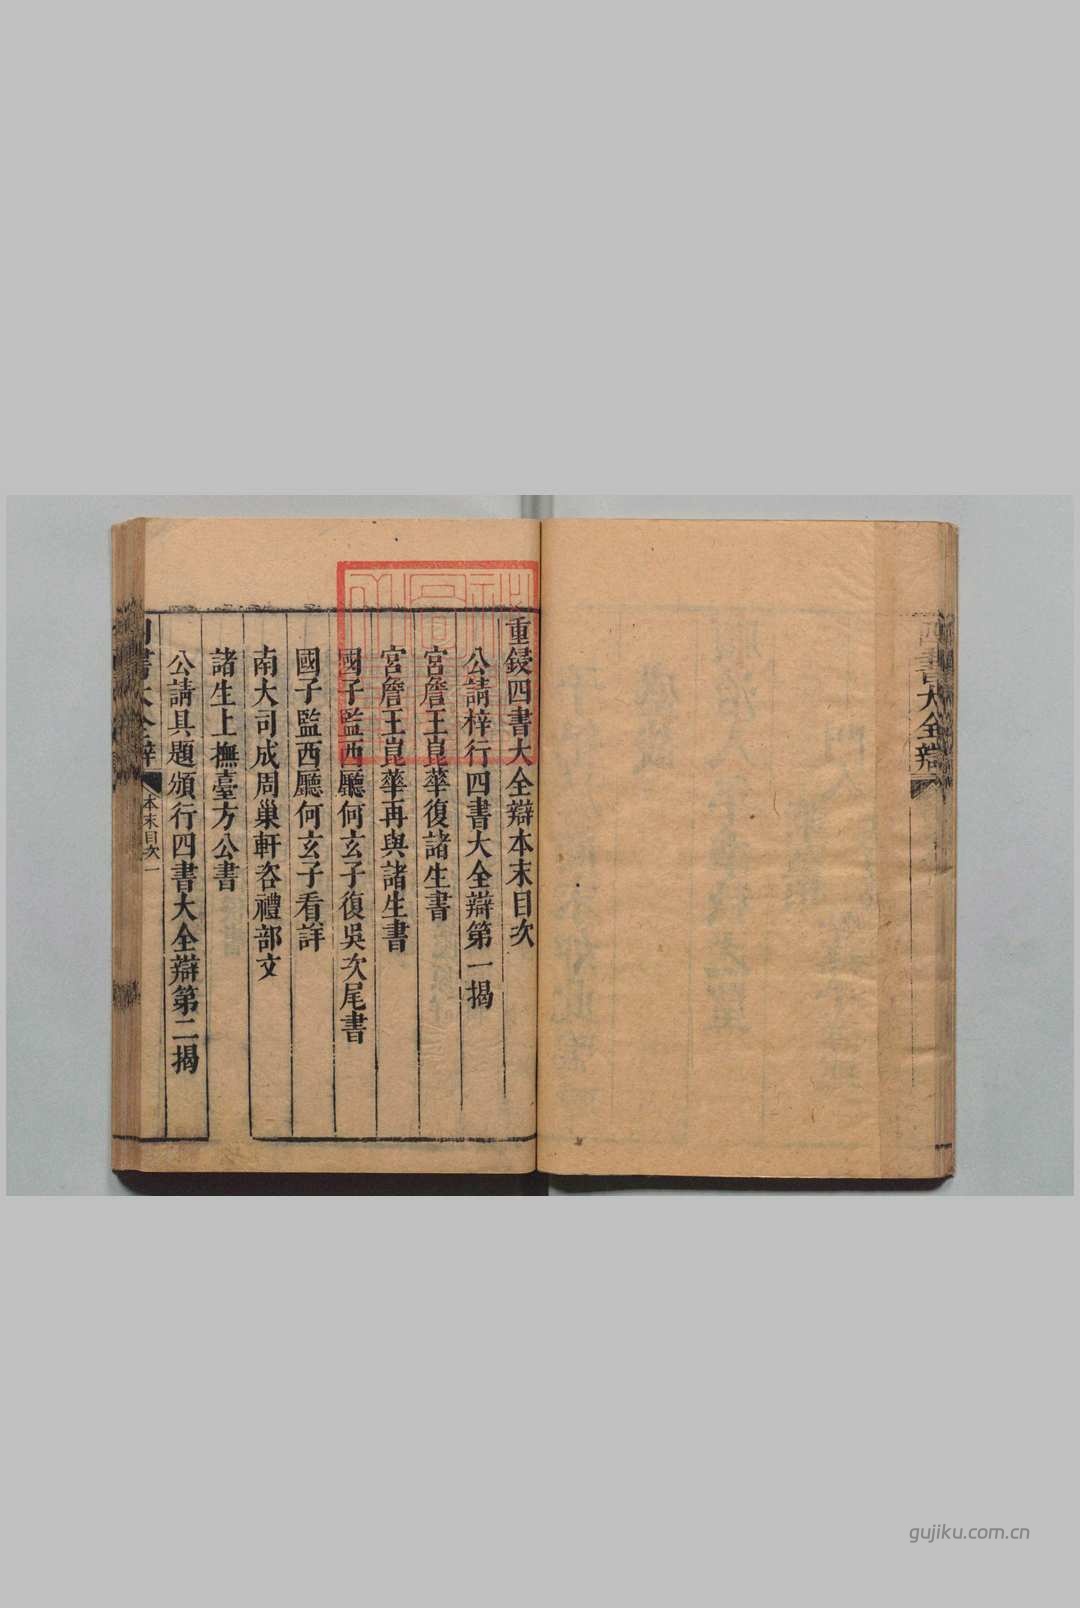 四書大全辯
重鋟四書大全辯本末目次
公請梓行四書大全辯第一揭
宮詹王崑華復諸生書
宮詹王崑華再與諸生書
國子監西廳何玄子復吳次尾書
國子監西廳何玄子看詳
南大司成周巢軒咨禮部文
諸生上撫臺方公書
公請具題頒行四書大全辯第二揭
四書大全辯
本末目次一
gujiku.com.cn